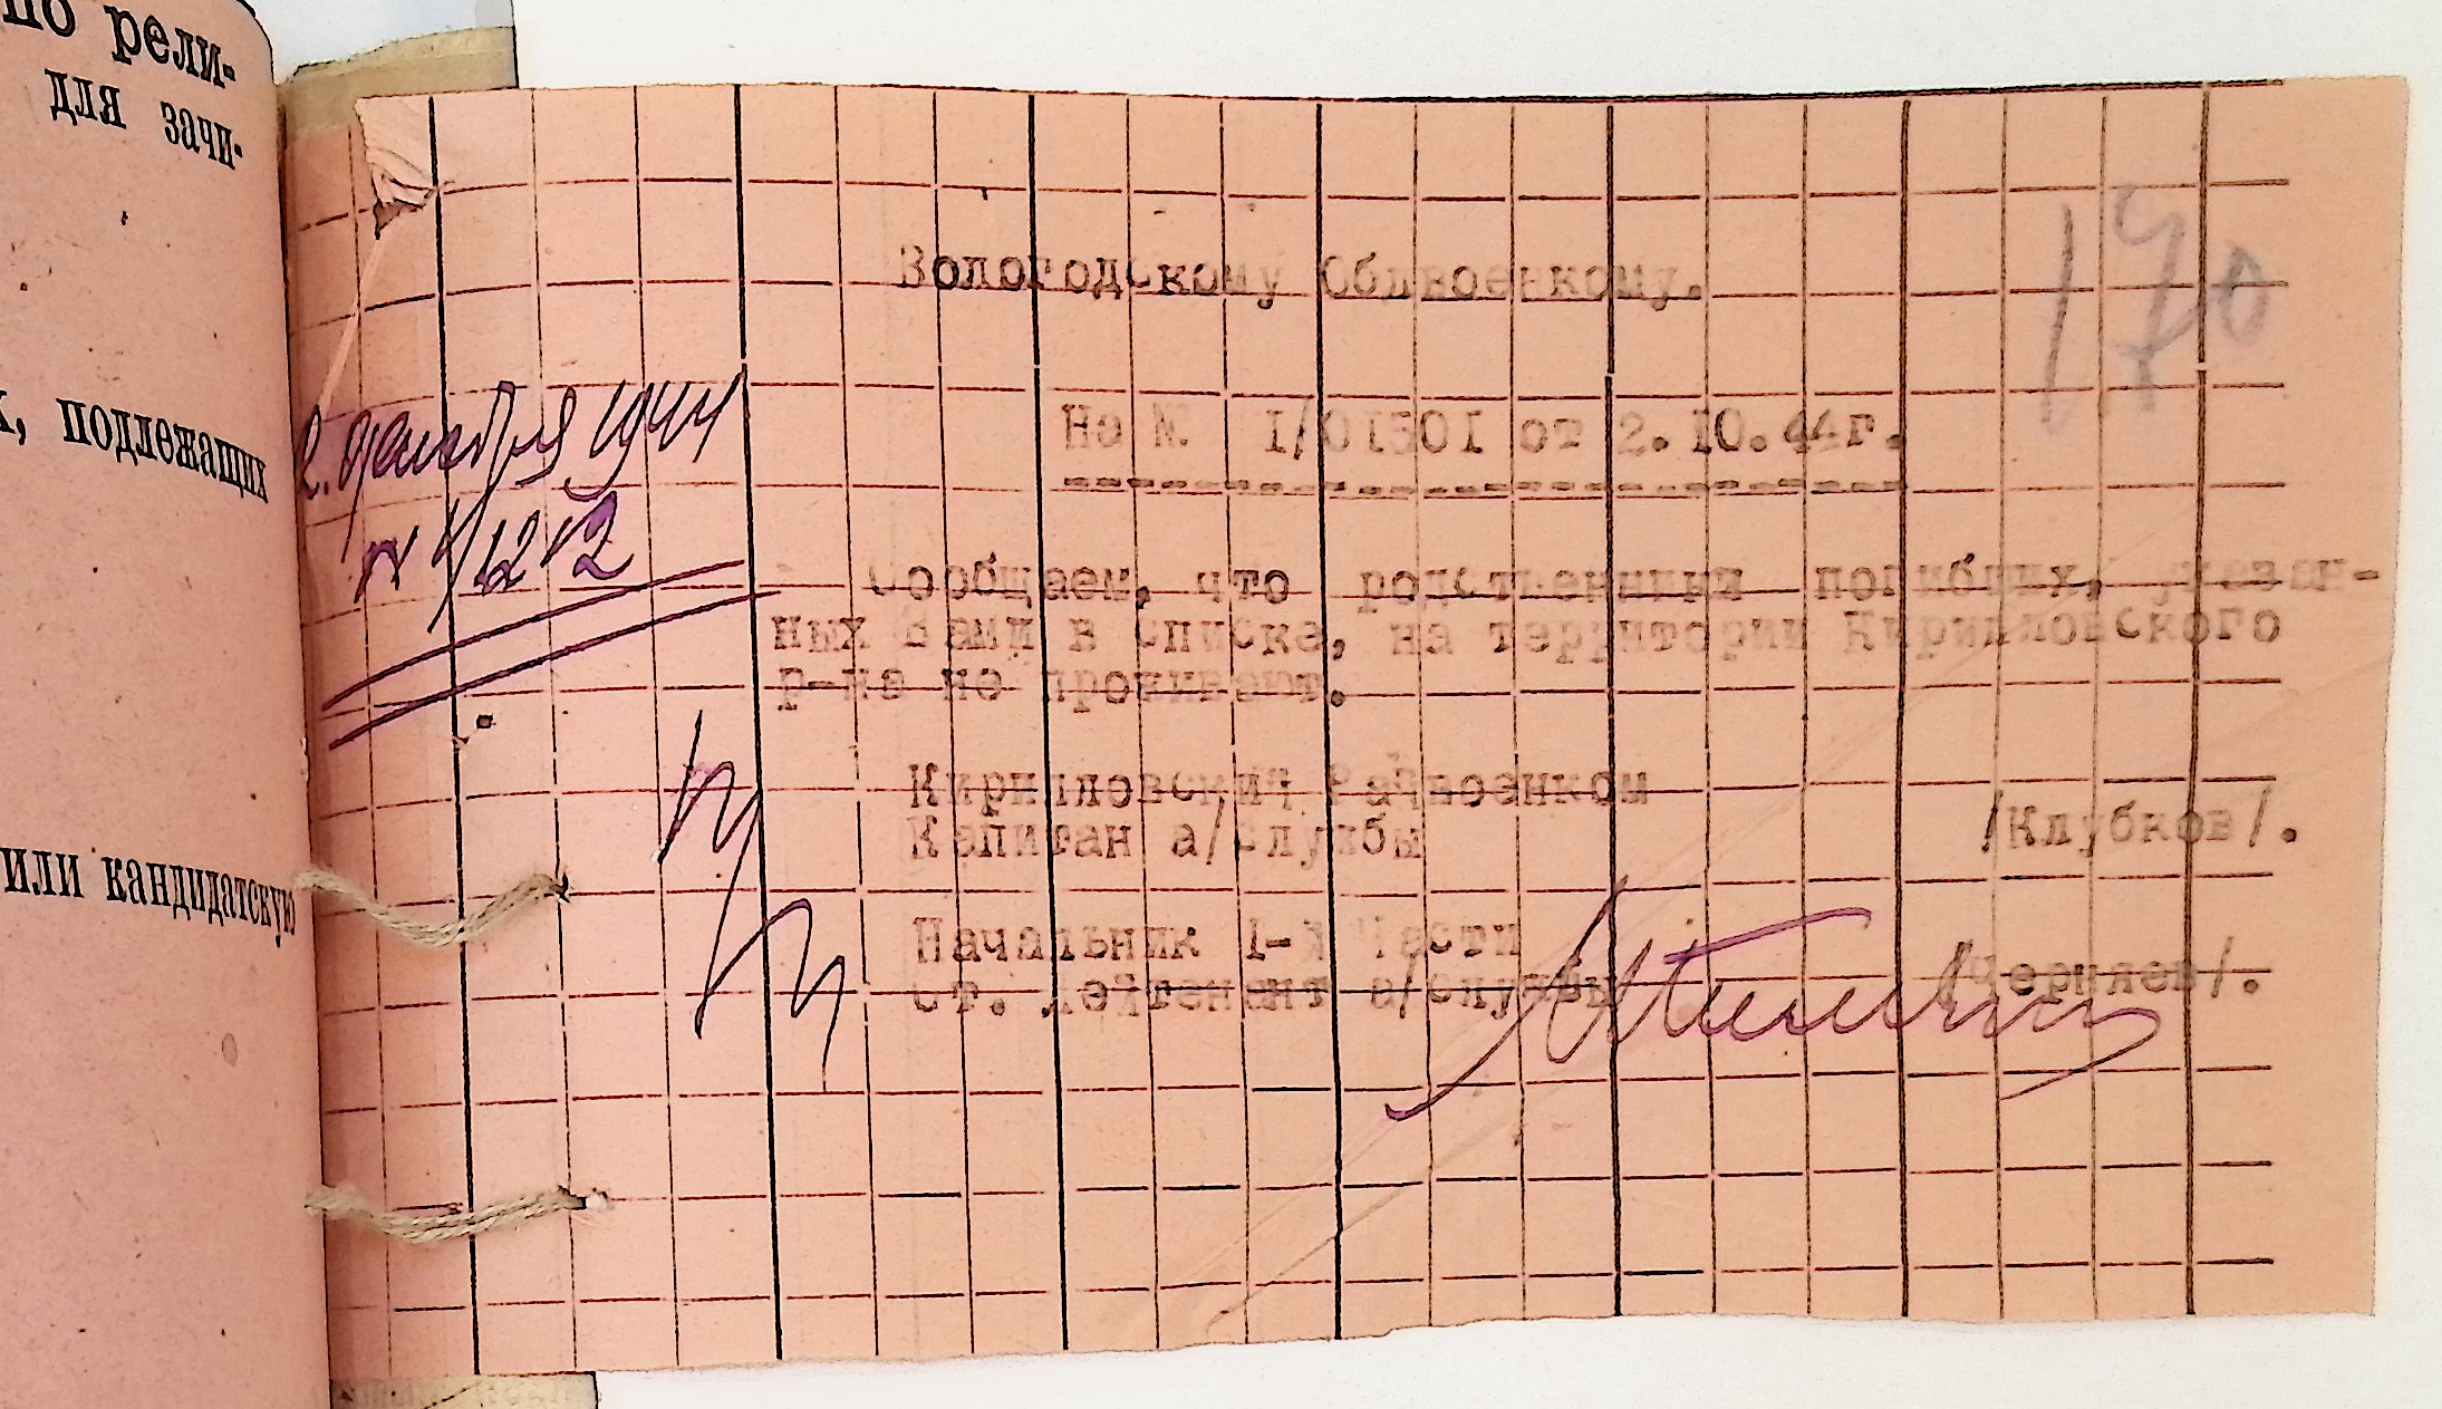 по рели-
для зачи-
подлежащих
или кандидатскую
170
Вологодскому Облвоенкому.
На № I/01301 от 2.10.44г.
декабря 1944
N 1/1212
Сообщаем, что родственники погибших, указан-
ных Вами в списке, на территории Кирилловского
р-на не проживают.
Кирилловский Райвоенком
Капитан а/службы /Клубков/.
Начальник 1-й Части
Ст. Лейтенант а/службы /Черняев/.